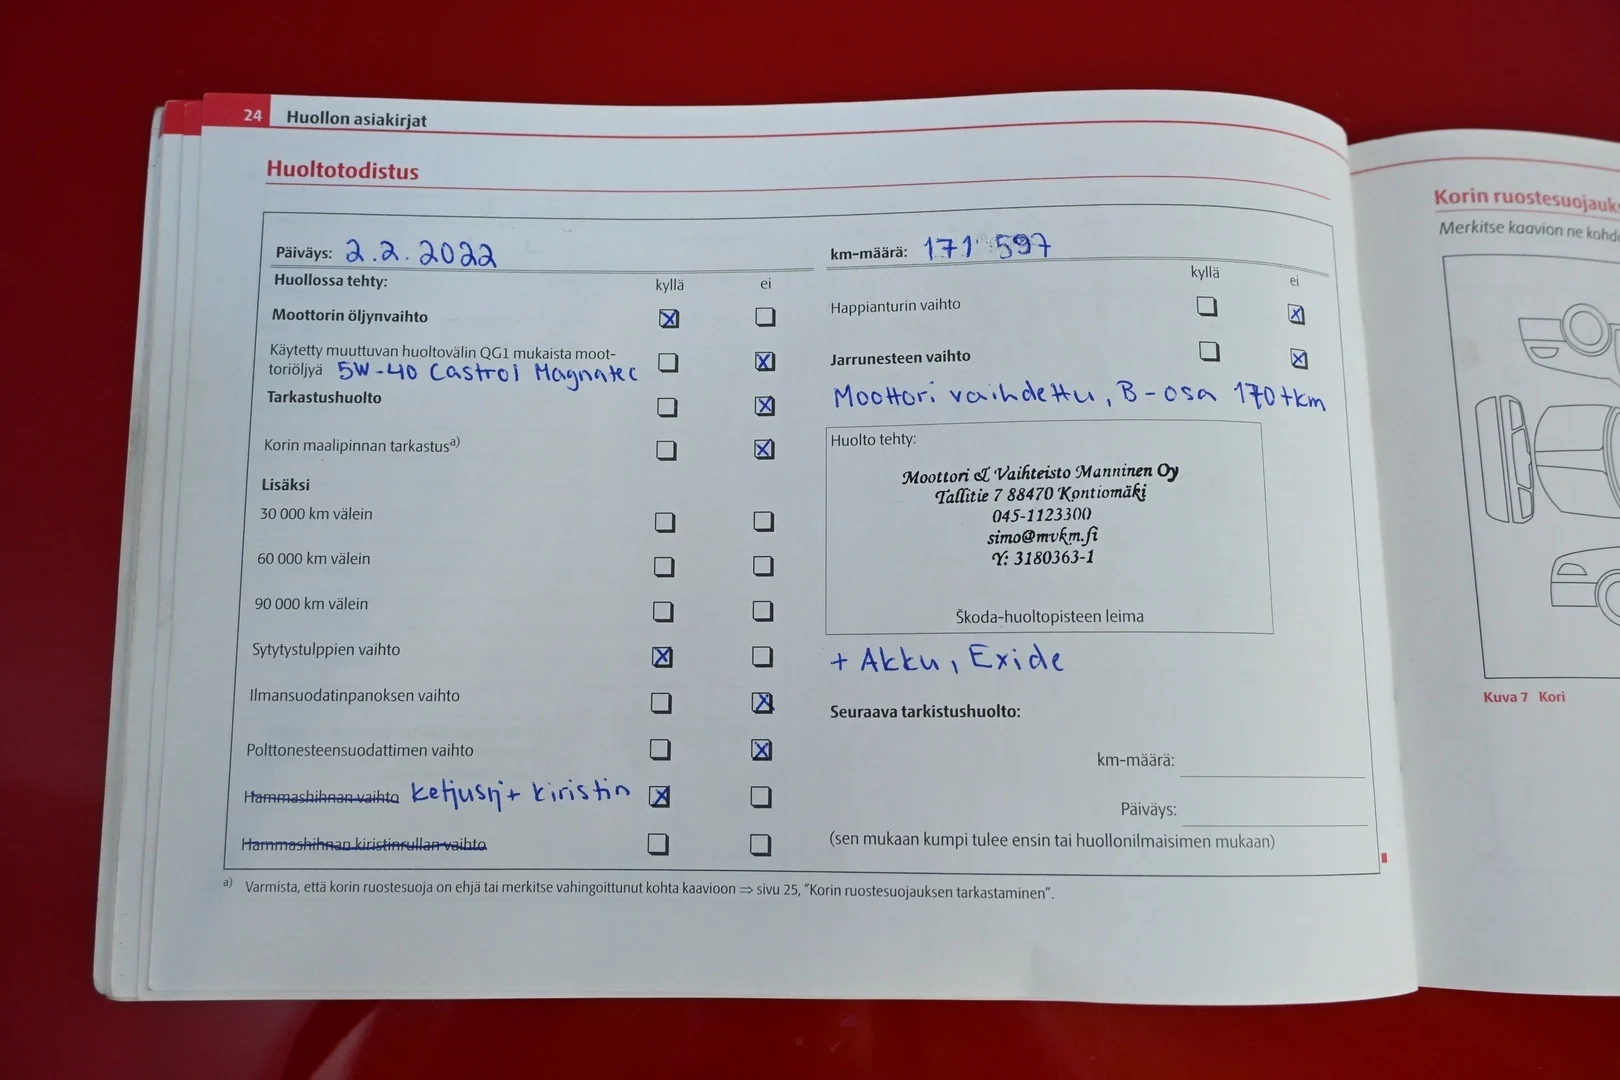 24 Huollon asiakirjat
Huoltotodistus
Päiväys: 2.2.2022
Huollossa tehty: kyllä ei
Moottorin öljynvaihto
Käytetty muuttuvan huoltovälin QG1 mukaista moot-
toriöljyä 5W-40 Castrol Magnatec
Tarkastushuolto
Korin maalipinnan tarkastus a)
Lisäksi
30 000 km välein
60 000 km välein
90 000 km välein
Sytytystulppien vaihto
Ilmansuodatinpanoksen vaihto
Polttonesteensuodattimen vaihto
Hammashihnan vaihto ketjusrj + kiristin
Hammashihnan kiristinrullan vaihto
km-määrä: 171 597
kyllä ei
Happianturin vaihto
Jarrunesteen vaihto
Moottori vaihdettu, B-osa 170tkm
Huolto tehty:
Moottori & Vaihteisto Manninen Oy
Tallitie 7 88470 Kontiomäki
045-1123300
simo@mvkm.fi
Y: 3180363-1
Škoda-huoltopisteen leima
+ Akku, Exide
Seuraava tarkistushuolto:
km-määrä:
Päiväys:
(sen mukaan kumpi tulee ensin tai huollonilmaisimen mukaan)
a) Varmista, että korin ruostesuoja on ehjä tai merkitse vahingoittunut kohta kaavioon ⇒ sivu 25, "Korin ruostesuojauksen tarkastaminen".
Korin ruostesuojauks
Merkitse kaavion ne kohd
Kuva 7 Kori